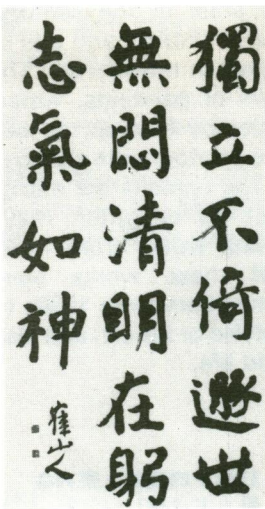 獨立不倚遯世
無悶清明在躬
志氣如神
隺山人